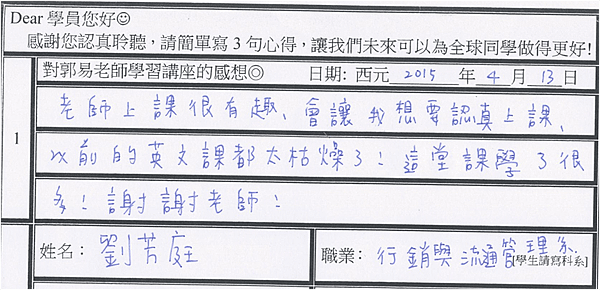 Dear 學員您好☺
感謝您認真聆聽，請簡單寫 3 句心得，讓我們未來可以為全球同學做得更好!
對郭易老師學習講座的感想◎ 日期: 西元 2015 年 4 月 13 日
1
老師上課很有趣、會讓我想要認真上課、
以前的英文課都太枯燥了! 這堂課學了很
多! 謝謝老師!
姓名： 劉芳庭 職業： 行銷與流通管理系
[學生請寫科系]